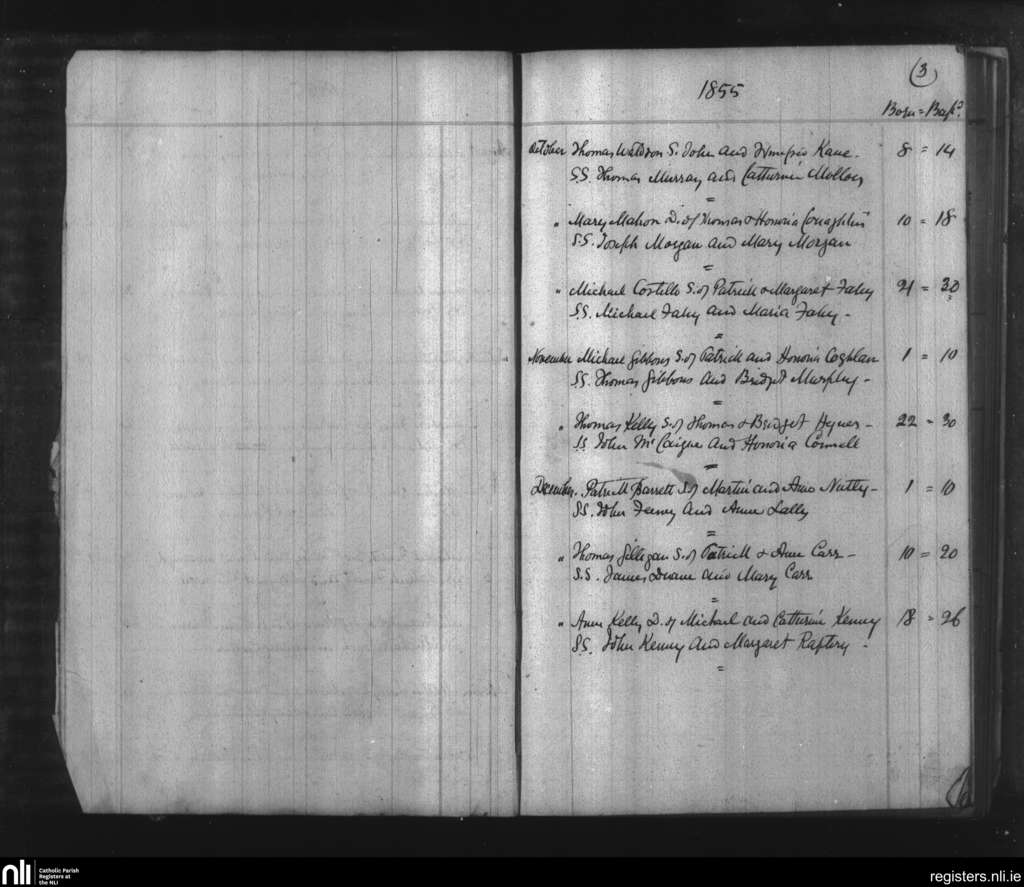 (3)
1855
Born = Bapd.
October Thomas Waldron S. John and Winifrid Kane -
S.S. Thomas Murray and Catherine Molloy
=
" Mary Mahon D. of Thomas & Honoria Coughlin
S.S. Joseph Morgan and Mary Morgan
=
" Michael Costello S. of Patrick & Margaret Fahy
S.S. Michael Fahy and Maria Fahy -
=
November Michael Gibbons S. of Patrick and Honoria Coghlan
S.S. Thomas Gibbons and Bridget Murphy -
=
" Thomas Kelly S. of Thomas & Bridget Hynes -
S.S. John Mc Caigue and Honoria Connell
=
December. Patrick Barrett S. of Martin and Anne Nutly -
S.S. John Feeney and Anne Lally
=
" Thomas Gilligan S. of Patrick & Anne Carr -
S.S. James Duane and Mary Carr
=
" Anne Kelly D. of Michael and Catherine Kenny
S.S. John Kenny and Margaret Raftery -
=
8 = 14
10 = 18
21 = 30
1 = 10
22 = 30
1 = 10
10 = 20
18 = 26
nli
Catholic Parish
Registers at
the NLI
registers.nli.ie